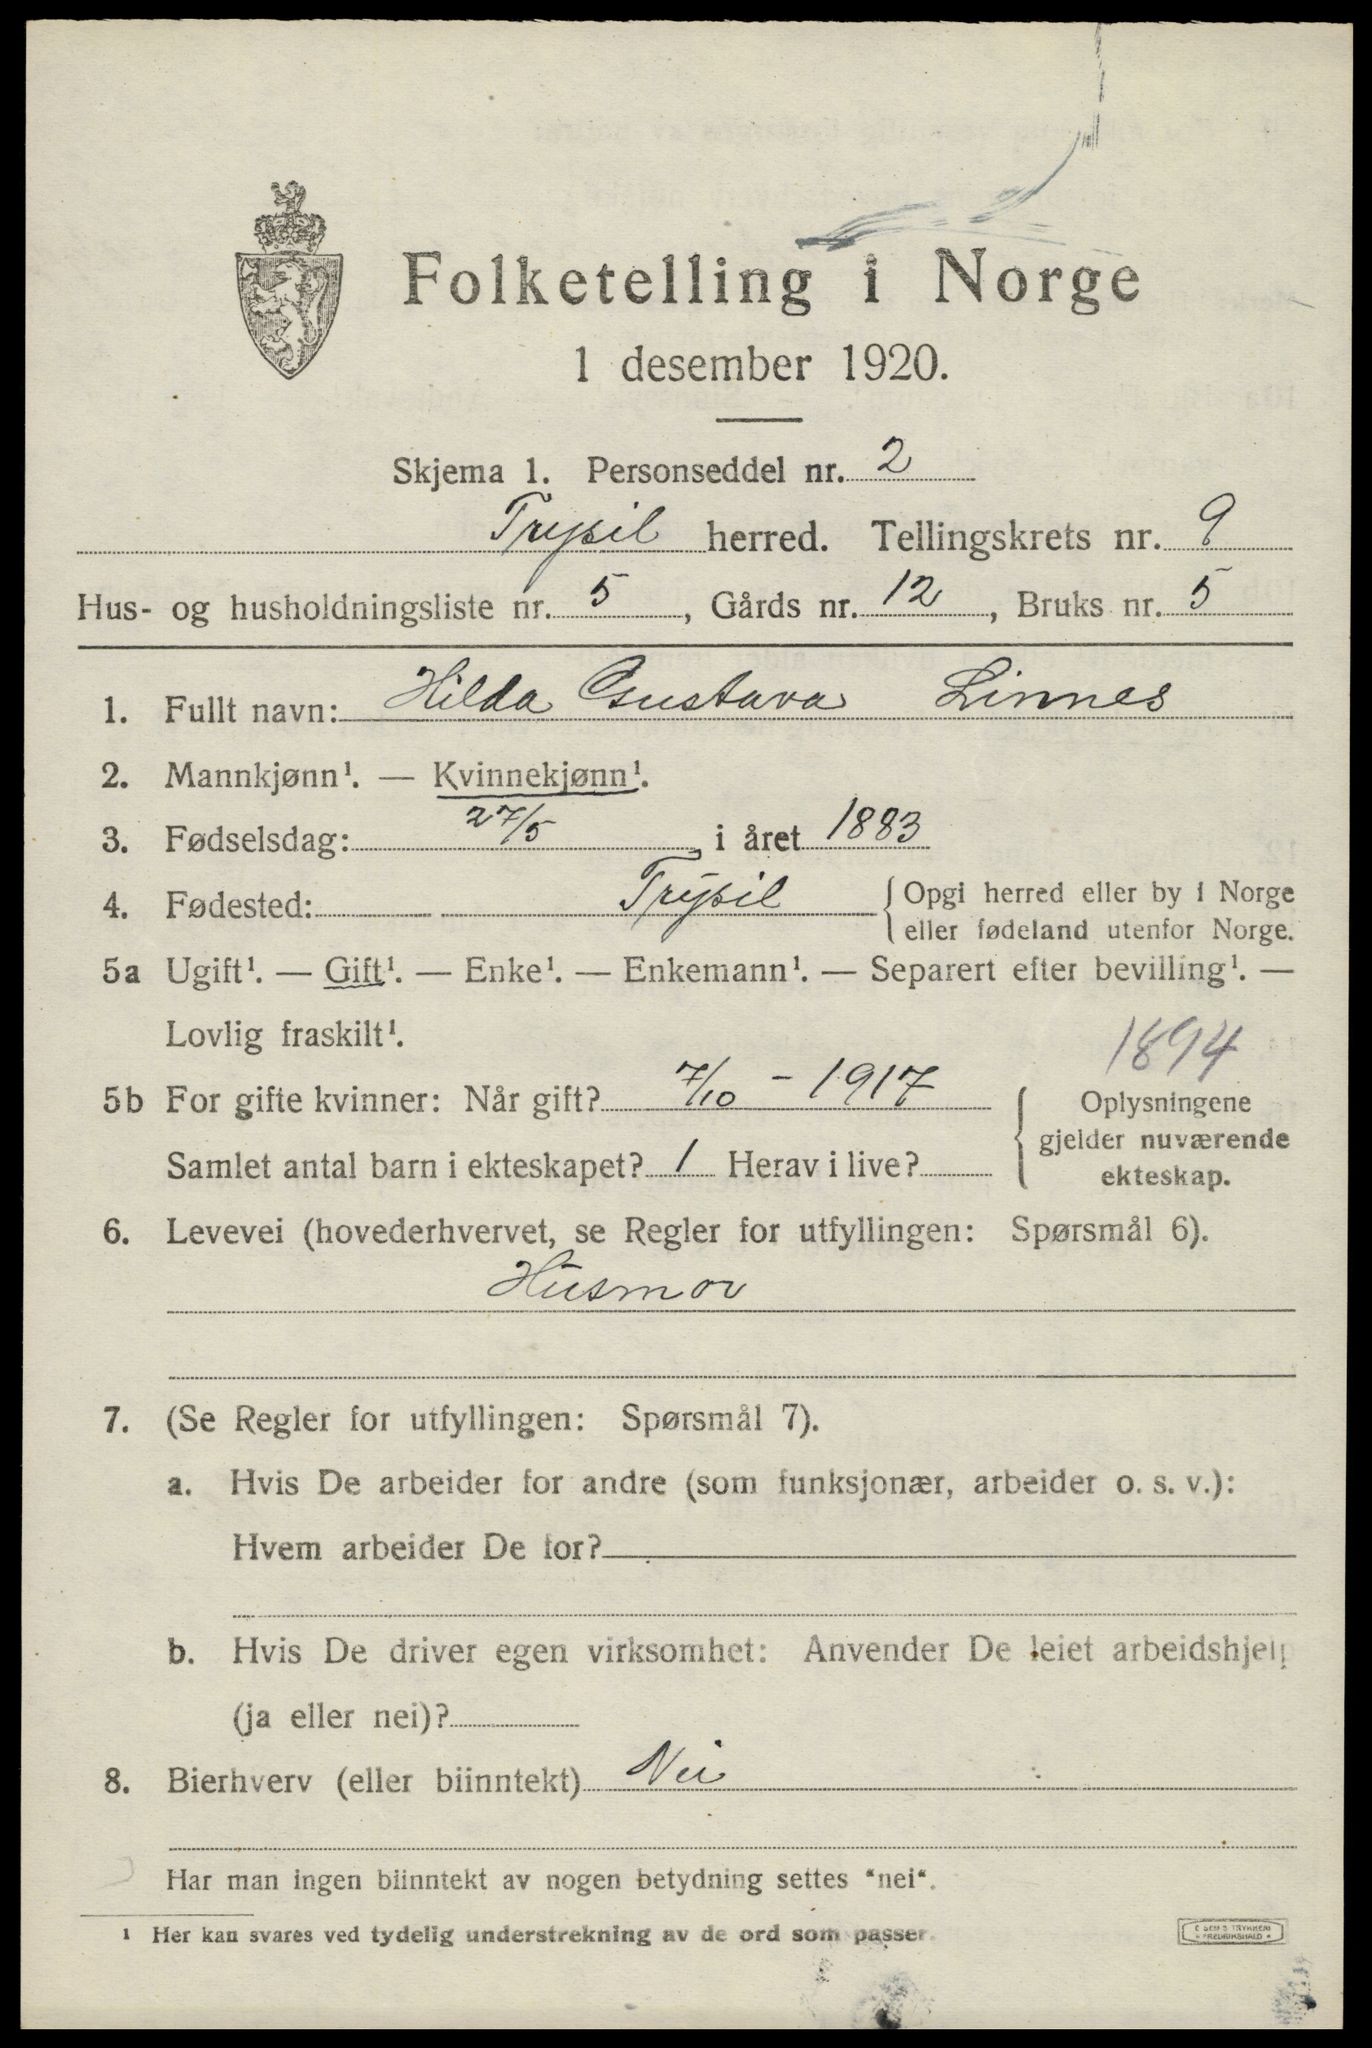 Folketelling i Norge
1 desember 1920.
Skjema 1. Personseddel nr. 2
Trysil herred. Tellingskrets nr. 9
Hus- og husholdningsliste nr. 5, Gårds nr. 12, Bruks nr. 5
1. Fullt navn: Hilda Gustava Linnes
2. Mannkjønn¹. — Kvinnekjønn¹.
3. Fødselsdag: 27/5, i året 1883
4. Fødested: Trysil { Opgi herred eller by i Norge
eller fødeland utenfor Norge.
5a Ugift¹. — Gift¹. — Enke¹. — Enkemann¹. — Separert efter bevilling¹. —
Lovlig fraskilt¹.
1894
5b For gifte kvinner: Når gift? 7/10 - 1917 { Oplysningene
gjelder nuværende
Samlet antal barn i ekteskapet? 1 Herav i live?
ekteskap.
6. Levevei (hovederhvervet, se Regler for utfyllingen: Spørsmål 6).
Husmor
7. (Se Regler for utfyllingen: Spørsmål 7).
a. Hvis De arbeider for andre (som funksjonær, arbeider o. s. v.):
Hvem arbeider De for?
b. Hvis De driver egen virksomhet: Anvender De leiet arbeidshjelp
(ja eller nei)?
8. Bierhverv (eller biinntekt) Nei
Har man ingen biinntekt av nogen betydning settes "nei".
¹ Her kan svares ved tydelig understrekning av de ord som passer.
TRYKKERI
FREDRIKSHALD